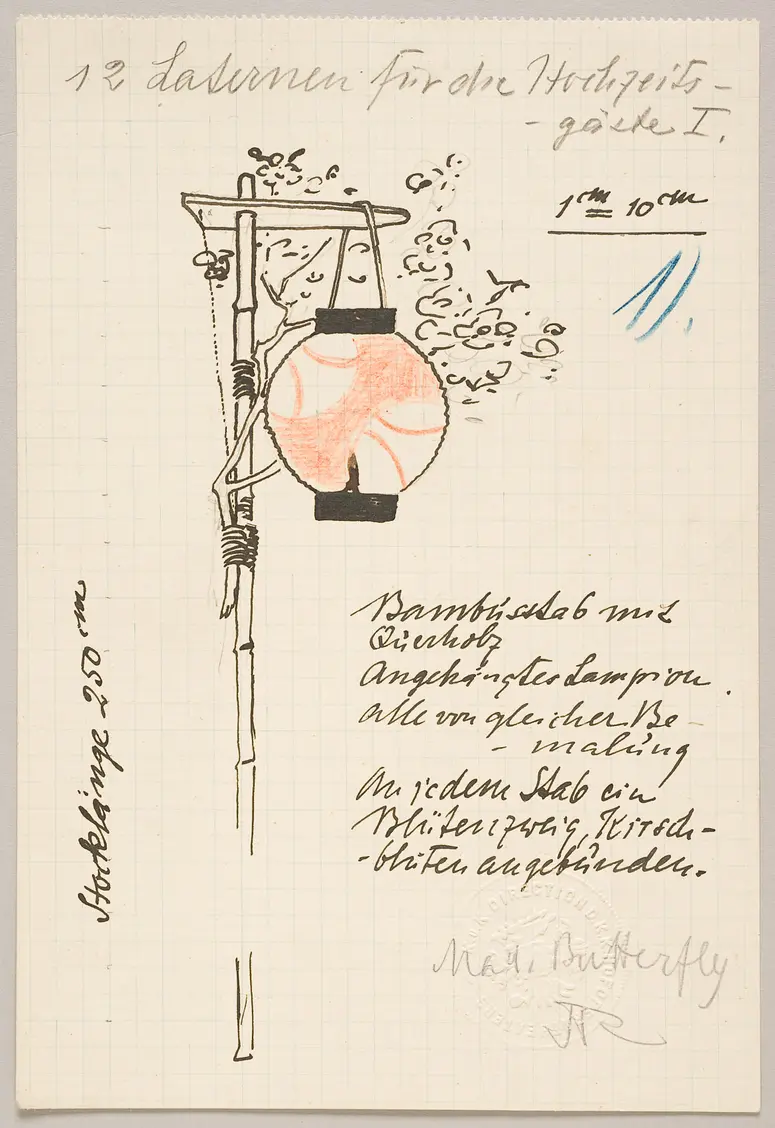 12 Laternen für die Hochzeits-
- gäste I.
1 cm = 10 cm
11.
Stocklänge 250 cm
Bambusstab mit
Querholz
Angehängtes Lampion
alle von gleicher Be-
- malung
An jedem Stab ein
Blütenzweig, Kirsch-
- blüten angebunden.
Mad. Butterfly